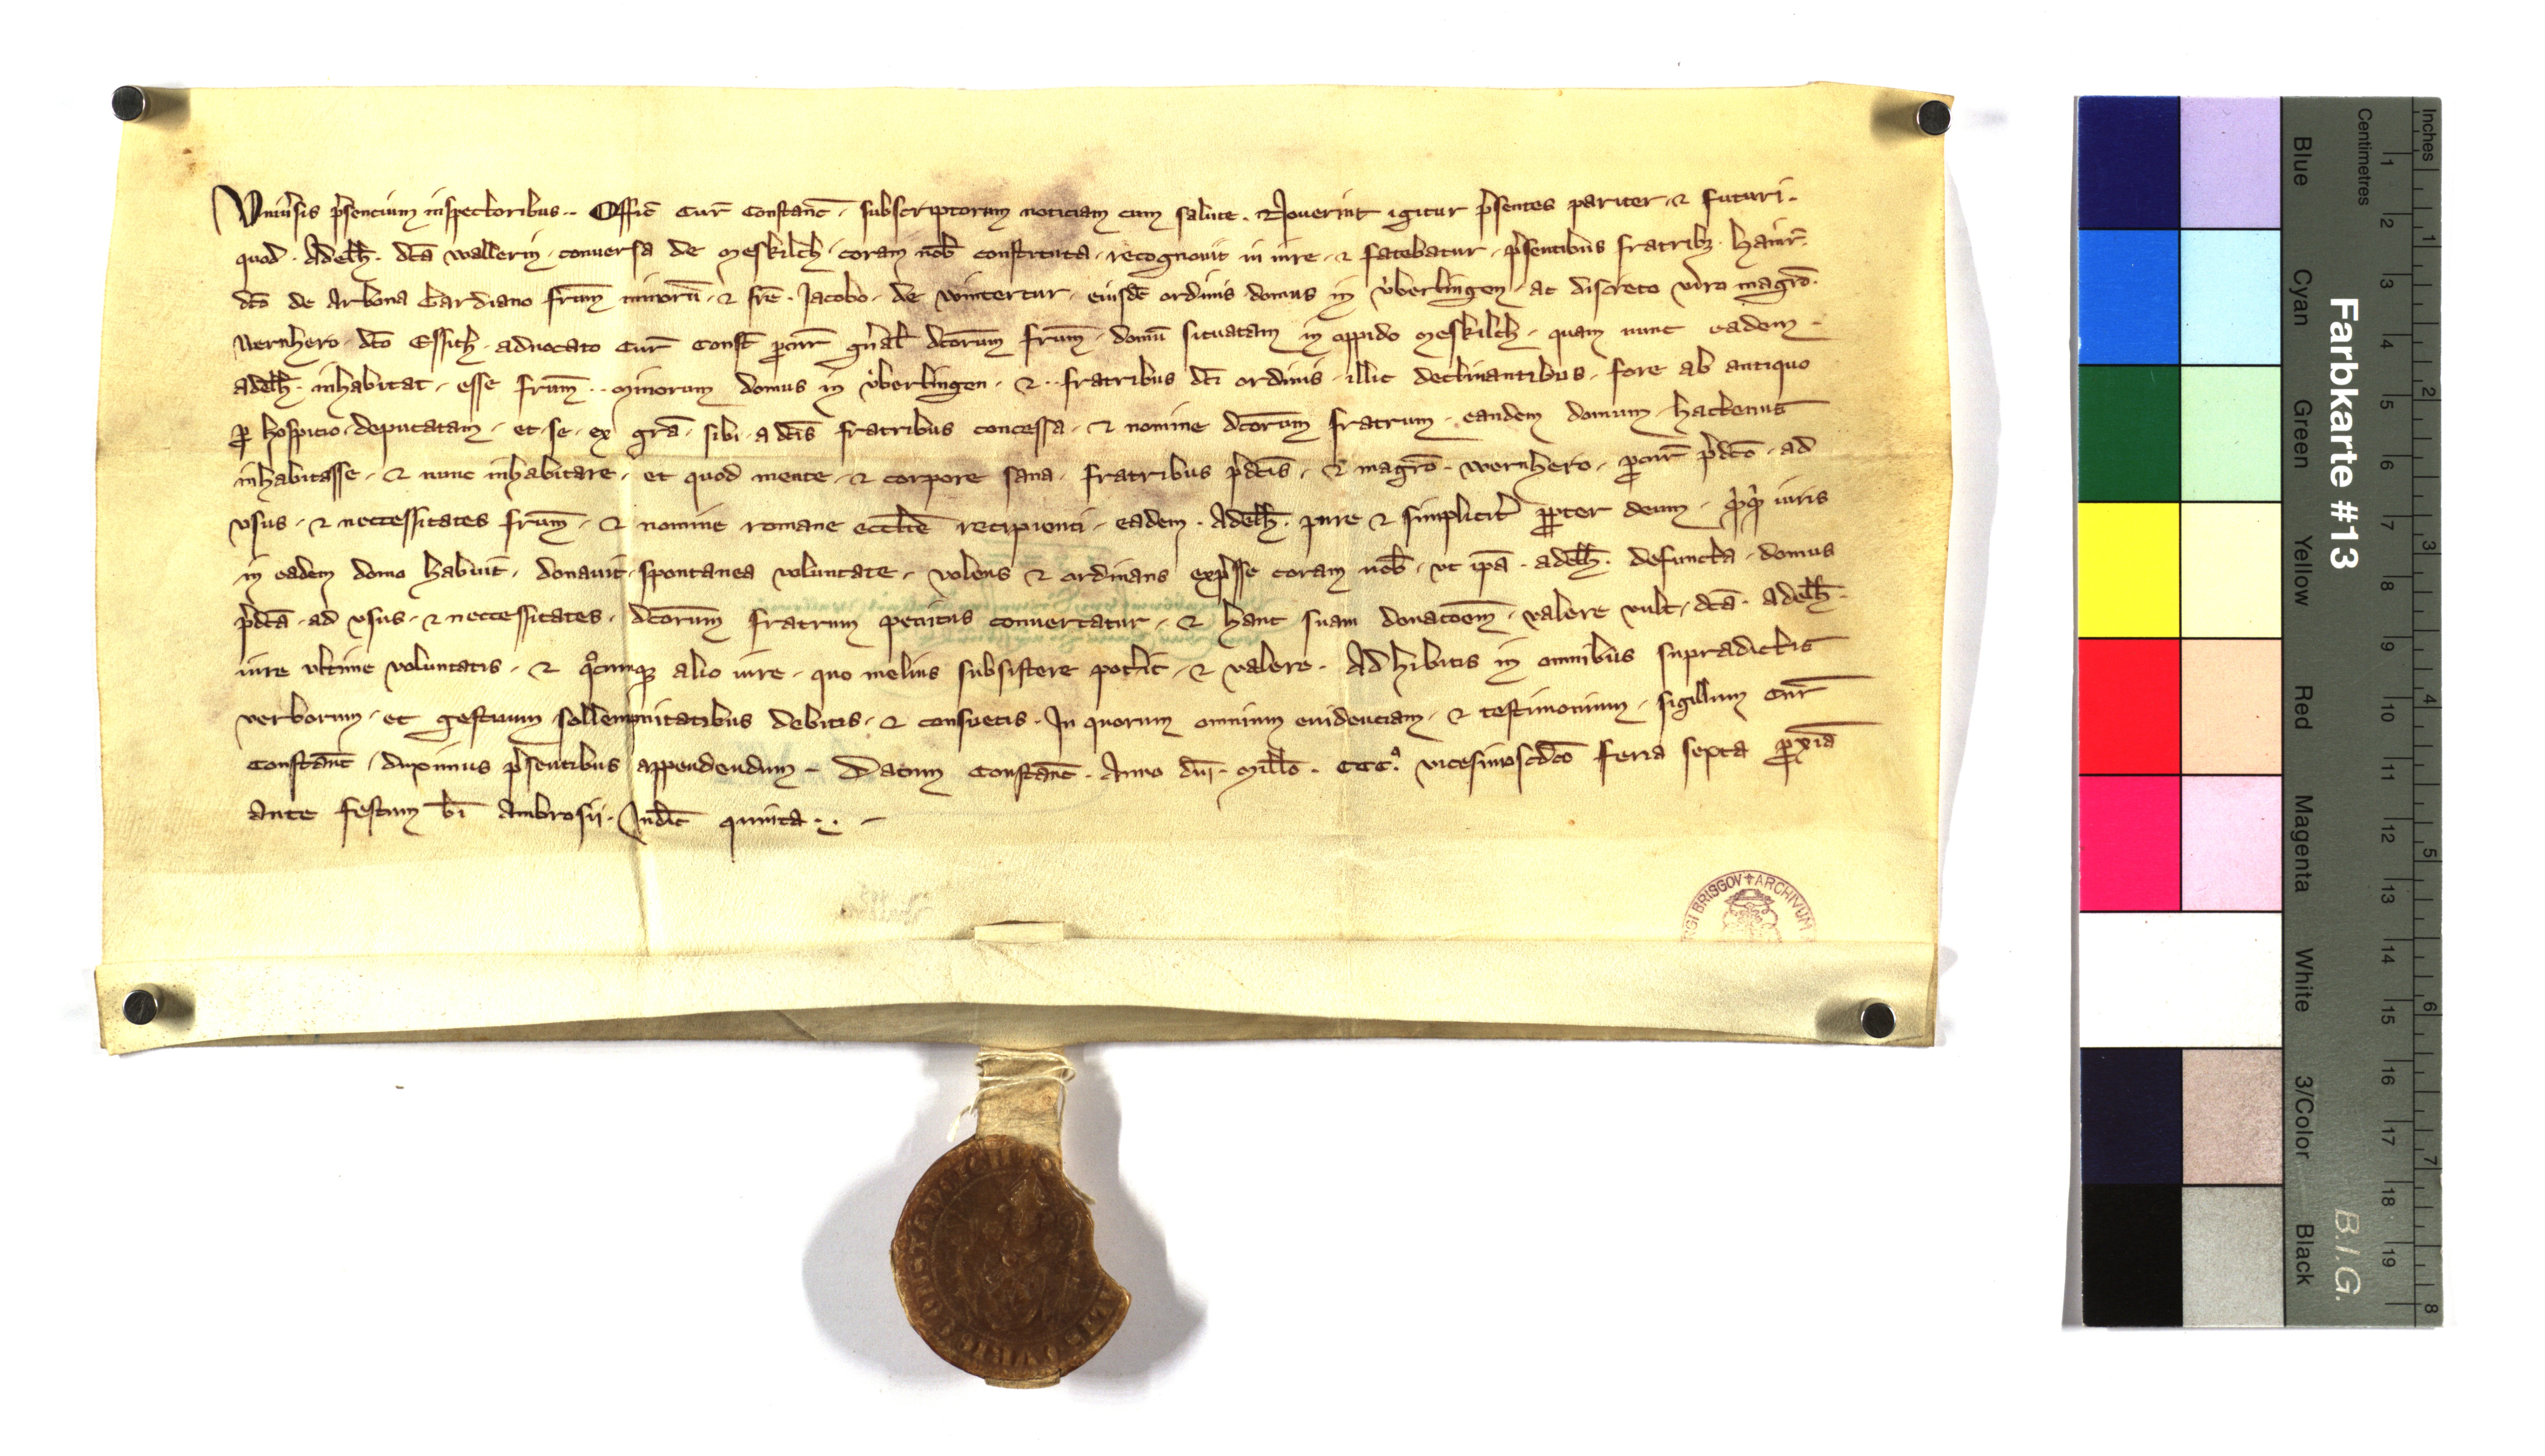 Uniu'sis p'sencium inspectoribus .. Offic̄ Cur̄ Constanc̄ . subscriptorum noticiam cum salute . Nouerint igitur p'sentes pariter . ⁊ futuri .
quod . Adelh̄ . dc̄a wallerin . conuersa de Meskilch . coram nob̄ constituta . recognouit in iure . ⁊ fatebatur . p'sentibus fratribꝫ . Hainr̄ .
dc̄o de Arbona Gardiano frūm minorū . ⁊ fr̄e . Jacobo . de wintertur . eiusdē ordinis domus in v̊berlingen . ac discreto viro magr̄o .
wernhero . dc̄o Essich . aduocato Cur̄ Const̄ ꝓcur̄ gn̄al̄ dc̄orum frūm . domū situatam in oppido Meskilch . quam nunc eadem .
adelh̄ . inhabitat . esse frūm .. minorum domus in v̊berlingen . ⁊ .. fratribus dc̄i ordinis . illic declinantibus . fore ab antiquo
ꝓ hospicio . deputatam . et . se . ex gr̄a . sibi . a dc̄is fratribus concessa . ⁊ nomine dc̄orum fratrum . eandem domum . hactenus
inhabitasse . ⁊ nunc inhabitare . et quod mente . ⁊ corpore sana . fratribus p'dc̄is . ⁊ magr̄o . wernhero . ꝓcur̄ p'dc̄o . ad
vsus . ⁊ neccessitates frūm . ⁊ nomine romane eccl̄ie recipienti . eadem . Adelh̄ . pure ⁊ simplicit' ꝓpter deum . iuris
in eadem domo habuit . donauit . spontanea voluntate . volens ⁊ ordinans exp'sse coram nob̄ . vt ip̄a . adelh̄ . defuncta . domus
p'dc̄a . ad vsus . ⁊ neccessitates . dc̄orum fratrum penitus conuertatur . ⁊ hanc suam donac̄oem . valere vult . dc̄a . Adelh̄ .
iure vltime voluntatis . ⁊ qͦcumqꝫ alio iure . quo melius subsistere pot'it . ⁊ valere . Adhibitis in omnibus supradictis
verborum . et gestuum sollempnitatibus debitis . ⁊ consuetis . In quorum omnium euidenciam . ⁊ testimonium . sigillum Cur̄
Constanc̄ . duximus p'sentibus appendendum . Datum Constanc̄ . Anno dn̄i . Mill̄o . CCC.ͦ vicesimoscdō feria sexta ꝓxīa
ante festum b̄i Ambrosij . Indic̄ quinta . . . –
RGI BRISGOV ✝ ARCHIVUM
Farbkarte #13
B.I.G.
Inches
Centimetres
1 2 3 4 5 6 7 8
1 2 3 4 5 6 7 8 9 10 11 12 13 14 15 16 17 18 19
Blue Cyan Green Yellow Red Magenta White 3/Color Black